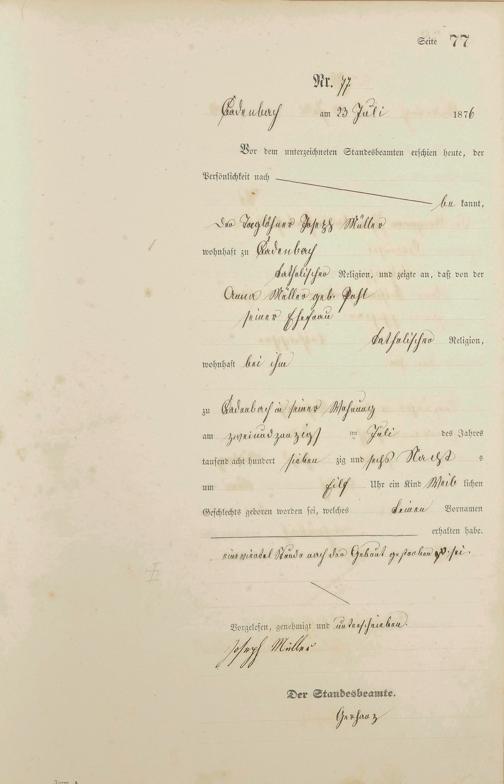 Seite 77
Nr. 77
Cadenbach am 23 Juli 1876
Vor dem unterzeichneten Standesbeamten erschien heute, der
Persönlichkeit nach
be kannt,
der Taglöhner Joseph Müller
wohnhaft zu Cadenbach
katholischer Religion, und zeigte an, daß von der
Anna Müller geb. Pahl
seiner Ehefrau
katholischer Religion,
wohnhaft bei ihm
zu Cadenbach in seiner Wohnung
am zweiundzwanzigst Juli des Jahres
tausend acht hundert sieben zig und sechs Nacht s
um eilf Uhr ein Kind Weib lichen
Geschlechts geboren worden sei, welches keinen Vornamen
erhalten habe.
eine viertel Stunde nach der Geburt gestorben sei.
Vorgelesen, genehmigt und unterschrieben.
Joseph Müller
Der Standesbeamte.
Gerharz